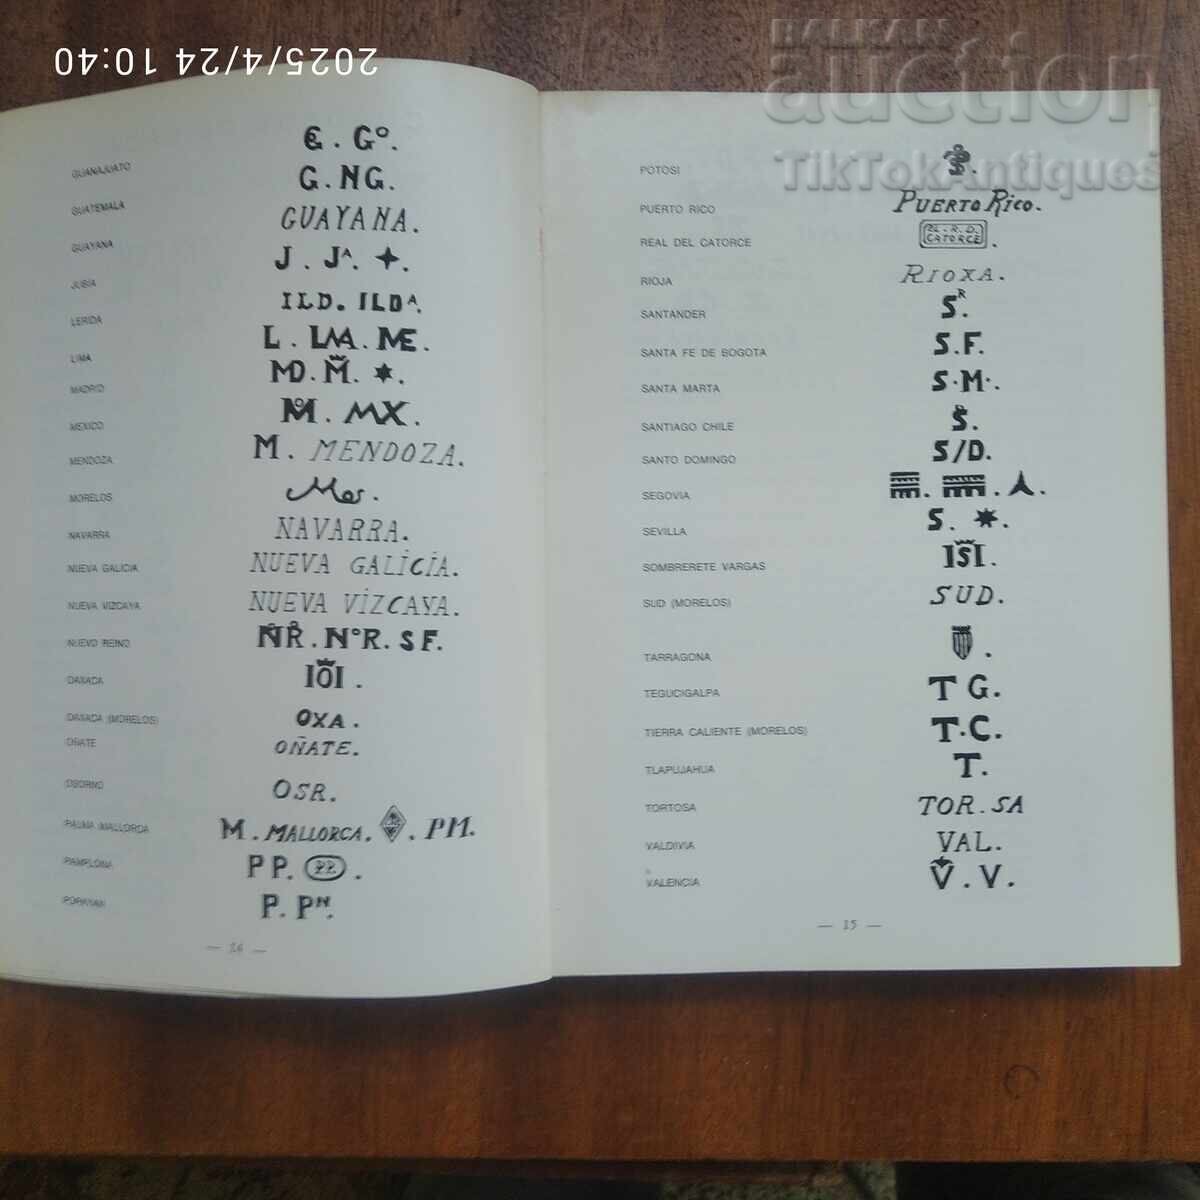 2025/4/24 10:40
BALKAN
auction
TikTokAntiques
GUANAJUATO G. Gº.
GUATEMALA G. NG.
GUAYANA GUAYANA.
JUBIA J. Jᴬ.
LERIDA ILD. ILDᴬ.
LIMA L. LMA. ME.
MADRID MD. M.
MEXICO M. MX.
MENDOZA M. MENDOZA.
MORELOS Mos.
NAVARRA NAVARRA.
NUEVA GALICIA NUEVA GALICIA.
NUEVA VIZCAYA NUEVA VIZCAYA.
NUEVO REINO NR. NºR. SF.
OAXADA IOI.
OAXADA (MORELOS) OXA.
OÑATE OÑATE.
OSORNO OSR.
PALMA (MALLORCA M. MALLORCA. PM.
PAMPLONA PP. PP.
POPAYAN P. Pᴺ.
— 14 —
POTOSI
PUERTO RICO PUERTO RICO.
REAL DEL CATORCE EL.R.D. CATORCE.
RIOJA RIOXA.
SANTANDER Sᴿ.
SANTA FE DE BOGOTA S.F.
SANTA MARTA S.M.
SANTIAGO CHILE S.
SANTO DOMINGO S/D.
SEGOVIA
SEVILLA S.
SOMBRERETE VARGAS ISI.
SUD (MORELOS) SUD.
TARRAGONA
TEGUCIGALPA T G.
TIERRA CALIENTE (MORELOS) T.C.
TLAPUJAHUA T.
TORTOSA TOR.SA
VALDIVIA VAL.
VALENCIA V. V.
— 15 —